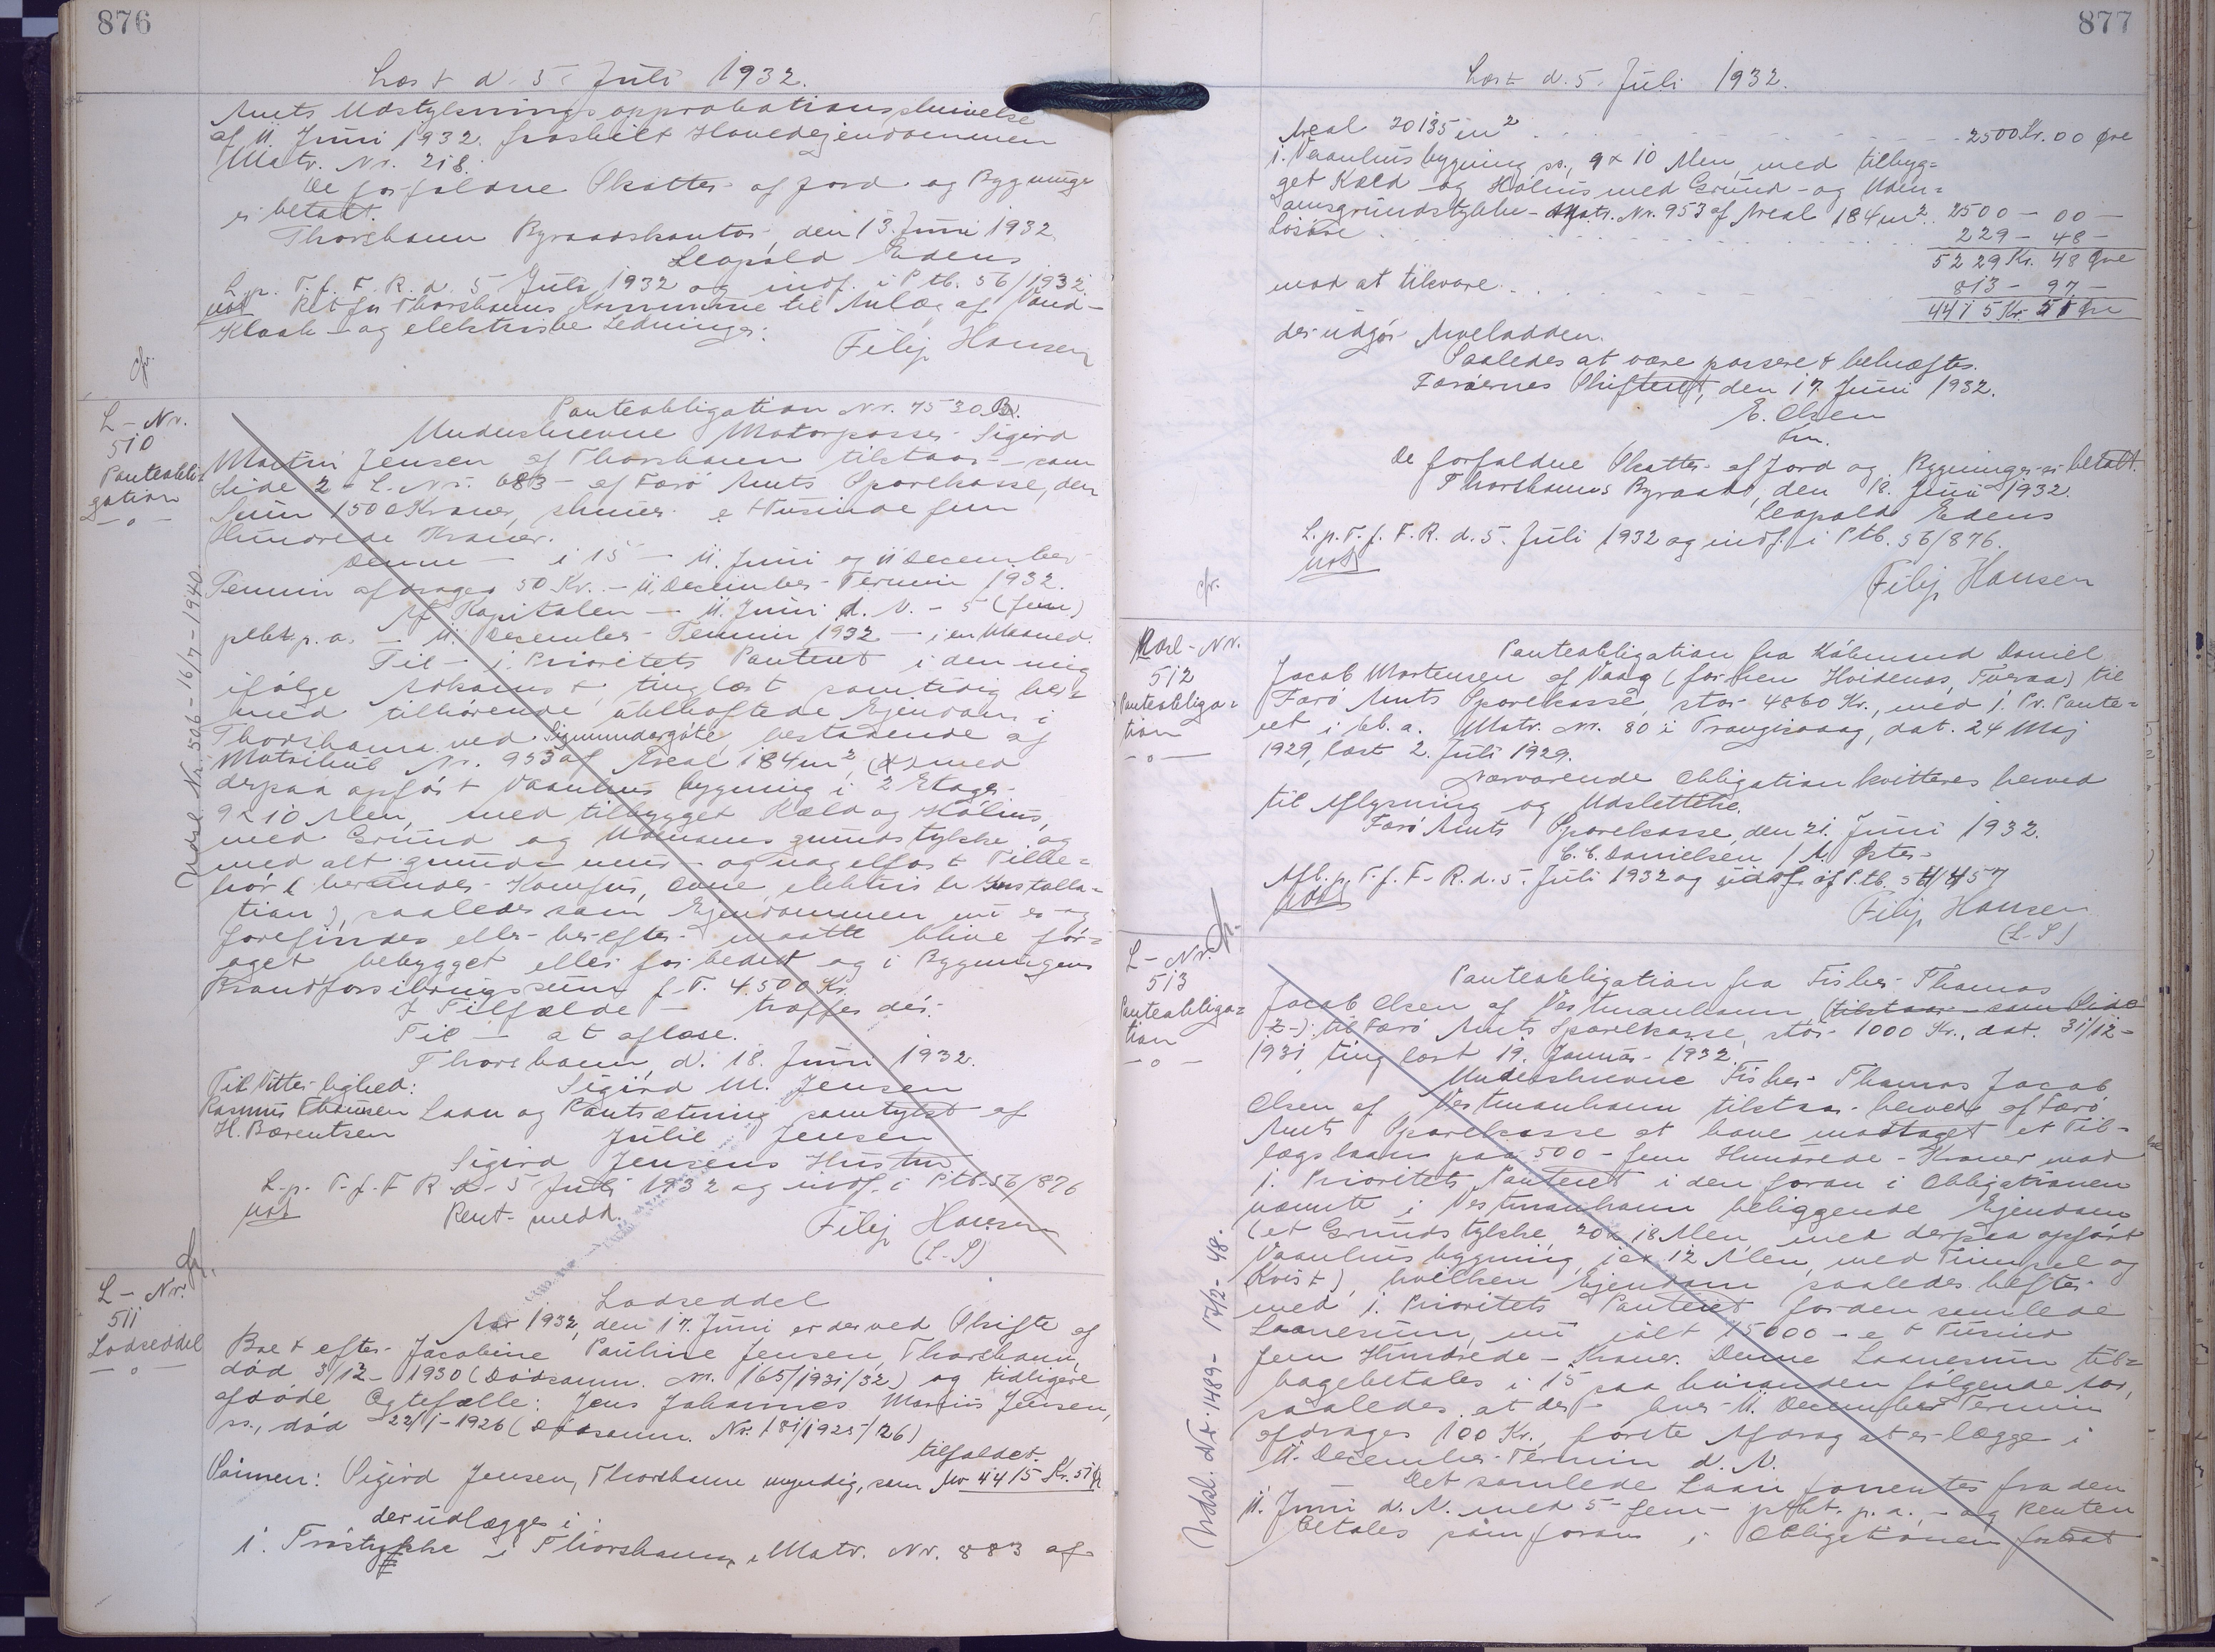 876
Læst d. 5. Juli 1932.
Amts Udstykningsapprobationsskrivelse
af 11. Juni 1932. fraskilt Hovedejendommen
Matr. Nr. 218.
De forfaldne Skatter af Jord og Bygninger
er betalt.
Thorshavn Byraadskontor, den 13. Juni 1932
Leopold Edens
L. p. T. f. F. R. d. 5 Juli 1932 og indf. i Ptb. 56/1932
not Ret for Thorshavns Kommune til Anlæg af Vand-
Kloak- og elektriske Ledninger:
Filip Hansen
cfr.
L-Nr.
510
Panteobli-
gation
-o-
Udsl. Nr. 506-16/7-1940.
Panteobligation Nr. 7530 B.
Underskrevne Motorpasser Sigird
Martin Jensen af Thorshavn tilstaar - som
Side 2 - L. Nr. 683 - af Færø Amts Sparekasse, den
Sum 1500 Kroner, skriver et Tusinde fem
Hundrede Kroner.
Denne - i 15 - 11. Juni og 11 December
Termin afdrages 50 Kr. - 11. December Termin 1932.
Af Kapitalen - 11. Juni d. A. - 5 (fem)
pCt. p. a. - 11. December Termin 1932 - i en Maaned.
Til - 1. Prioritets Panteret i den mig
ifølge Adkomst, tinglæst samtidig her-
med tilhørende, ubehæftede Ejendom i
Thorshavn ved Sigmundargøte bestaaende af
Matrikul Nr. 953 af Areal 184 m², (x) med
derpaa opført Vaanhus bygning i 2 Etager
9 x 10 Alen, med tilbygget Kæld og Hølius,
med Grund og Udenoms grundstykke og
med alt grund- mur- og nagelfast Tilbe-
hør (herunder Komfur, Ovne, elektriske Installa-
tion), saaledes som Ejendommen nu er og
forefindes eller herefter maatte blive for-
øget bebygget eller forbedret og i Bygningens
Brandforsikringssum f. T. 4.500 Kr.
I Tilfælde - træffes der.
Til - at aflæse.
Thorshavn, d. 18. Juni 1932.
Til Vitterlighed: Sigird M. Jensen
Rasmus Thomsen Laan og Pantsætning samtykt af
H. Bærentsen Julie Jensen
Sigird Jensens Hustru
L. p. T. f. F. R. d. 5 Juli 1932 og indf. i Ptb. 56/876
not Rent. medd. Filip Hansen
(L.S)
cfr.
L-Nr.
511
Lodseddel
-o-
Lodseddel
Aar 1932, den 17. Juni er der ved Skifte af
Boet efter Jacobine Pauline Jensen, Thorshavn,
død 3/12-1930 (Dødsanm. Nr. 165/1931/32) og tidligere
afdøde Ægtefælle: Jens Johannes Marius Jensen,
ss., død 22/1-1926 (Dødsanm. Nr. 181/1925/26)
tilfaldet.
Sønnen: Sigird Jensen, Thorshavn myndig, som for 4415 Kr. 51 Ø
der udlægges i:
1. Trøstykke i Thorshavn, Matr. Nr. 883 af
877
Læst d. 5. Juli 1932.
Areal 20135 m² . . . 2500 Kr. 00 Øre
1. Vaanhus bygning ss., 9 x 10 Alen, med tilbyg-
get Kæld og Hølius med Grund- og Uden-
omsgrundstykke - Matr. Nr. 953 af Areal 184 m² . . 2500 - 00 -
Løsøre . . . 229 - 48 -
5229 Kr. 48 Øre
mod at tilsvare . . . 813 - 97 -
4415 Kr. 51 Øre
der udgør Arvelodden.
Saaledes at være passeret bekræftes.
Færøernes Skifteret, den 17. Juni 1932.
E. Olsen
fm.
De forfaldne Skatter af Jord og Bygninger er betalt.
Thorshavns Byraad, den 18. Juni 1932.
Leopold Edens
L. p. T. f. F. R. d. 5. Juli 1932 og indf. i Ptb. 56/876.
not
Filip Hansen
cfr.
Nr.
512
Panteobliga-
tion
-o-
Panteobligation fra Købmand Daniel
Jacob Mortensen af Vaag (forhen Hvidenæs, Tveraa) til
Færø Amts Sparekasse, stor 4860 Kr., med 1. Pr. Pante-
ret i bl. a. Matr. Nr. 80 i Trangisvaag, dat. 24 Maj
1929, læst 2. Juli 1929.
Nærværende Obligation kvitteres herved
til Aflysning og Udslettelse.
Færø Amts Sparekasse, den 21. Juni 1932.
C. C. Danielsen / A. Øster
Afl. p. T. f. F. R. d. 5. Juli 1932 og udsl. af Ptb. 54/457
not
Filip Hansen
(L.S)
cfr.
L-Nr.
513
Panteobliga-
tion
-o-
Udsl. Nr. 1489-17/2-48.
Panteobligation fra Fisker Thomas
Jacob Olsen af Vestmanhavn (tilstaar - som Side
2-) til Færø Amts Sparekasse, stor 1000 Kr., dat. 31/12-
1931, tinglæst 19. Januar 1932.
Underskrevne Fisker Thomas Jacob
Olsen af Vestmanhavn tilstaar herved af Færø
Amts Sparekasse at have modtaget et Til-
lægslaan paa 500 - fem Hundrede - Kroner mod
1. Prioritets Panteret i den foran i Obligationen
nævnte i Vestmanhavn beliggende Ejendom
(et Grundstykke 20 x 18 Alen, med derpaa opført
Vaanhus bygning, 10 x 12 Alen, med Trempel og
Kvist), hvilken Ejendom saaledes hæfter
med 1. Prioritets Panteret for den samlede
Laanesum, nu ialt 15000 - et Tusind
fem Hundrede - Kroner. Denne Laanesum til-
bagebetales i 15 paa hinanden følgende Aar,
saaledes at der hver 11. December Termin
afdrages 100 Kr., første Afdrag at erlægge i
11. December Termin d. A.
Det samlede Laan forrentes fra den
11. Juni d. A. med 5 - fem - pCt. p. a. - og Renten
betales som foran i Obligationen fortsat